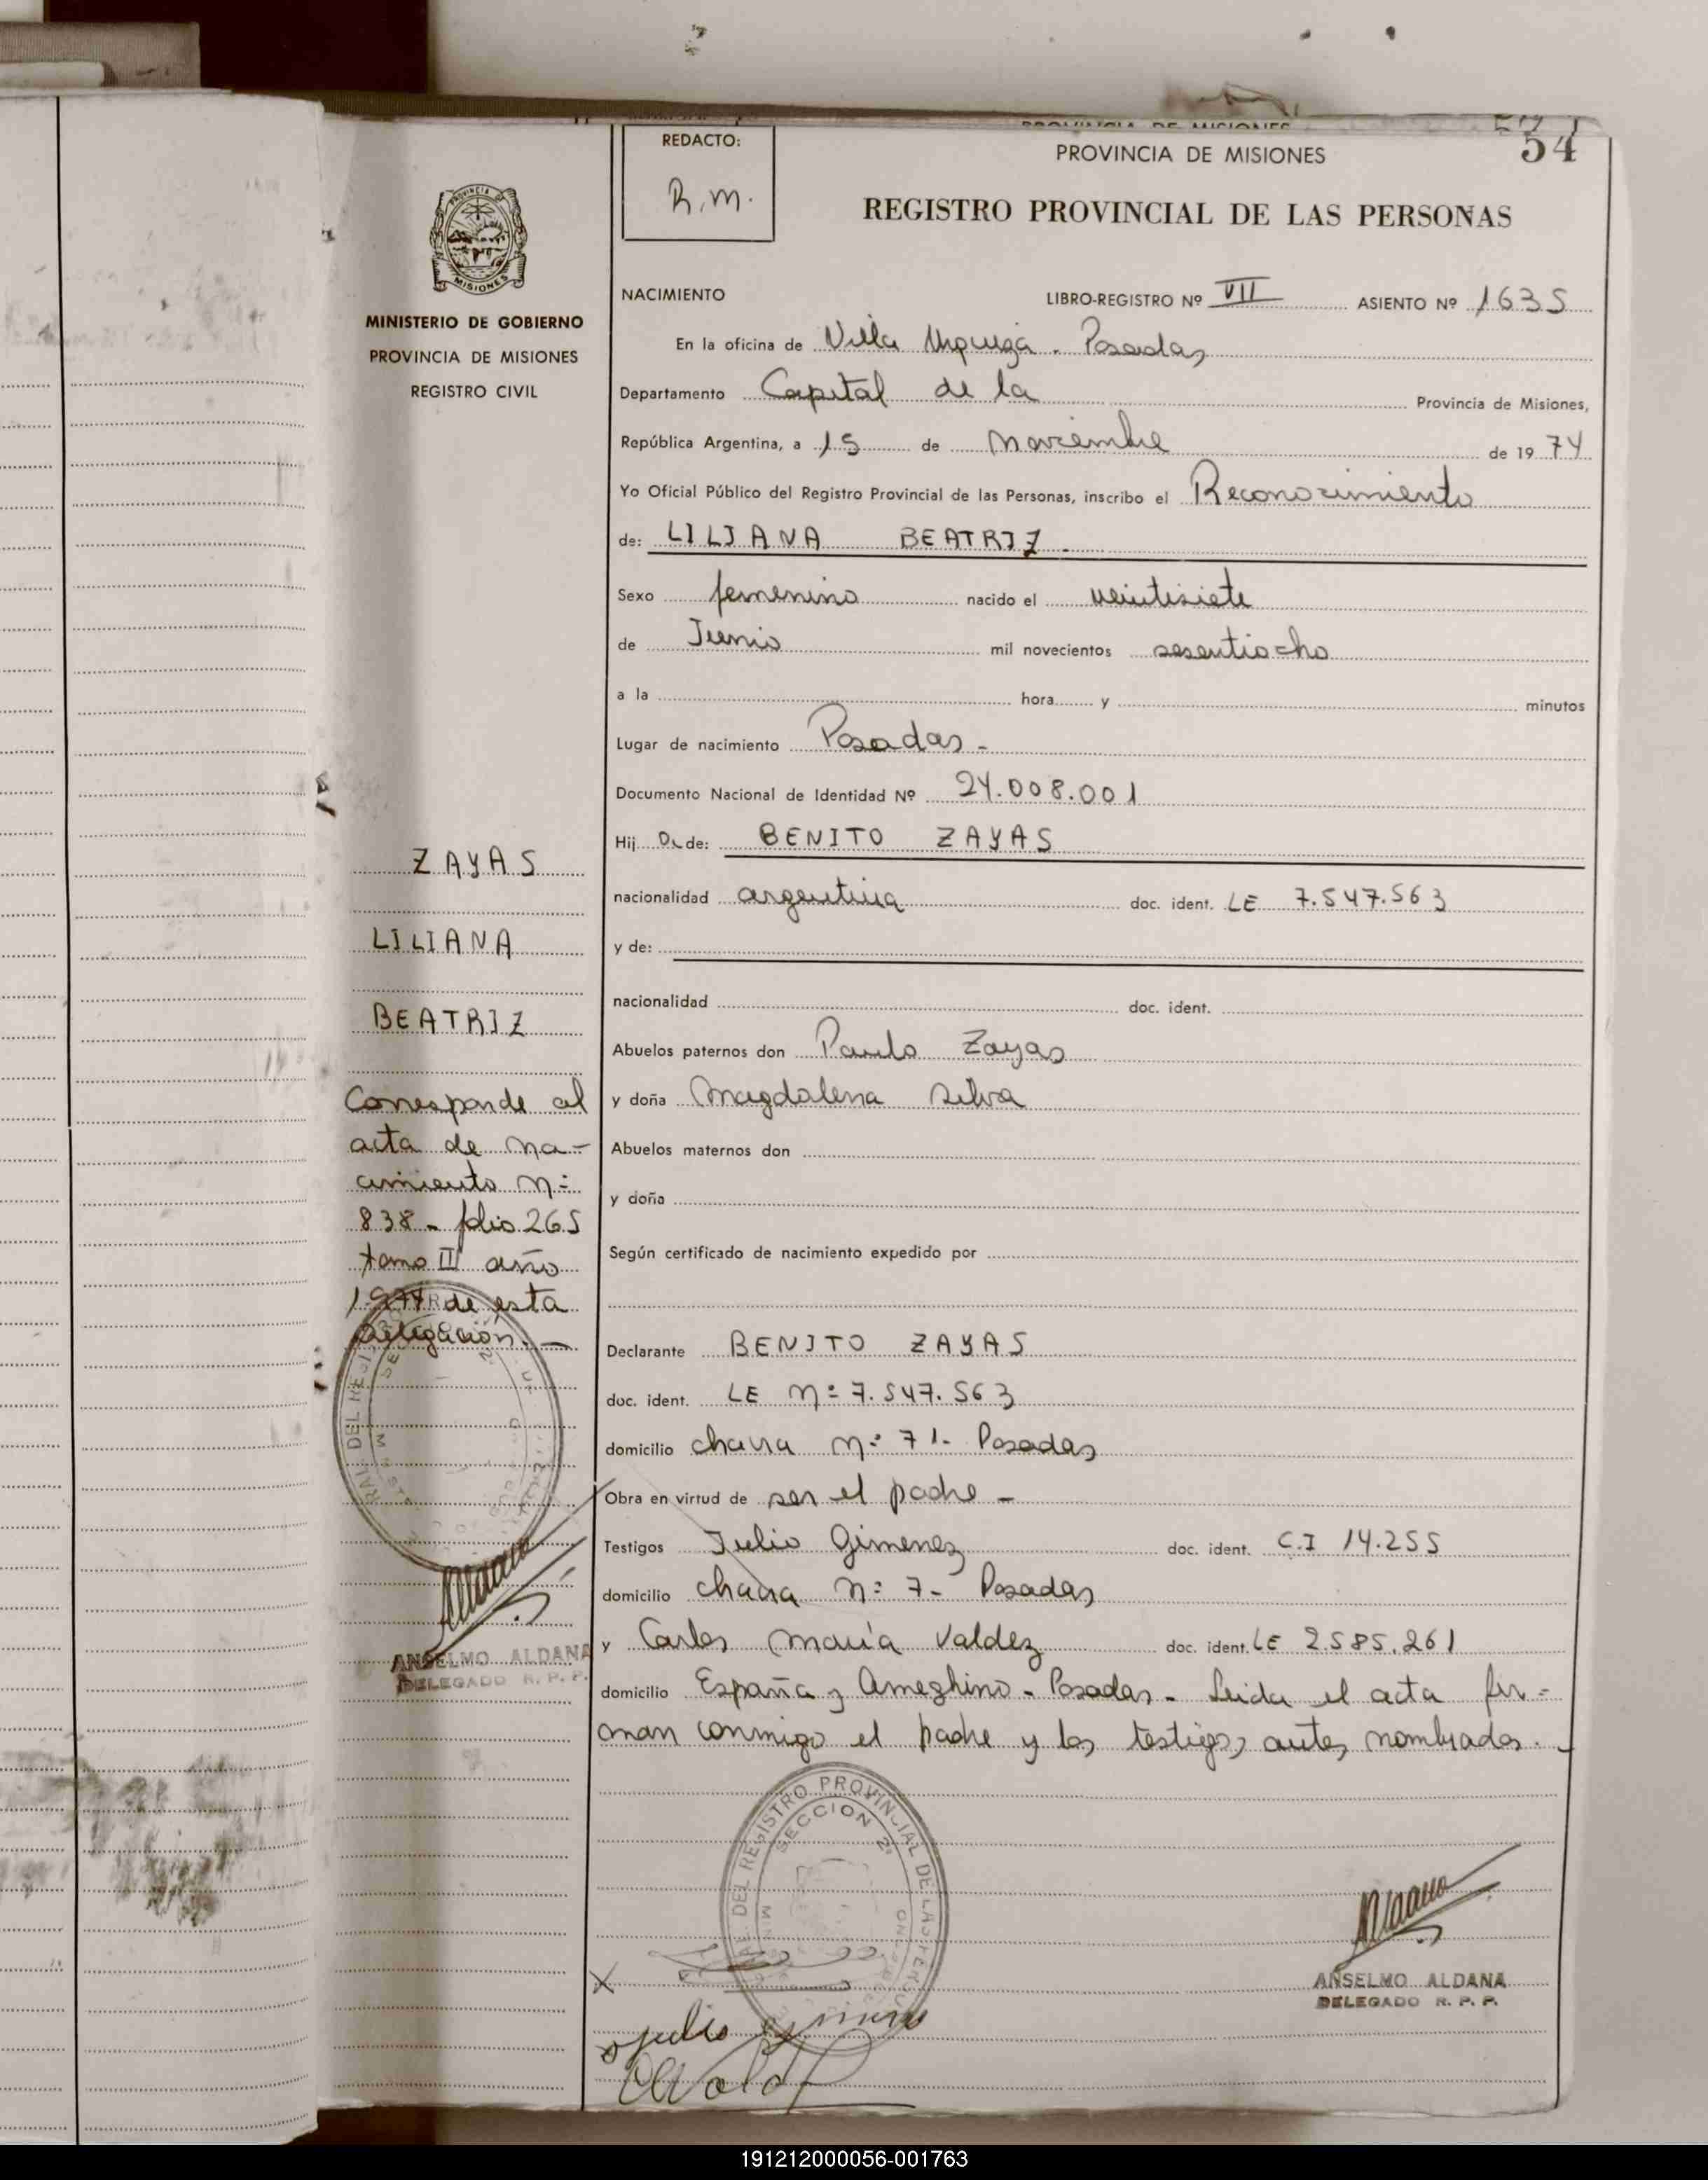 54
PROVINCIA DE MISIONES
REGISTRO PROVINCIAL DE LAS PERSONAS
REDACTO:
R.M.
PROVINCIA
MISIONES
MINISTERIO DE GOBIERNO
PROVINCIA DE MISIONES
REGISTRO CIVIL
ZAYAS
LILIANA
BEATRIZ
Corresponde al
acta de na-
cimiento Nº
838 - folio 265
tomo II año
1974 de esta
Delegación. -
ANSELMO ALDANA
DELEGADO R. P. P.
NACIMIENTO LIBRO-REGISTRO Nº VII ASIENTO Nº 1635
En la oficina de Villa Urquiza - Posadas
Departamento Capital de la Provincia de Misiones,
República Argentina, a 15 de Noviembre de 1974
Yo Oficial Público del Registro Provincial de las Personas, inscribo el Reconocimiento
de: LILIANA BEATRIZ -
Sexo femenino nacido el veintisiete
de Junio mil novecientos sesentiocho
a la hora y minutos
Lugar de nacimiento Posadas -
Documento Nacional de Identidad Nº 24.008.001
Hij a de: BENITO ZAYAS
nacionalidad argentina doc. ident. LE 7.547.563
y de:
nacionalidad doc. ident.
Abuelos paternos don Paulo Zayas
y doña Magdalena Silva
Abuelos maternos don
y doña
Según certificado de nacimiento expedido por
Declarante BENITO ZAYAS
doc. ident. LE Nº 7.547.563
domicilio chacra Nº 71- Posadas
Obra en virtud de ser el padre -
Testigos Julio Gimenez doc. ident. C.I 14.255
domicilio chacra Nº 7- Posadas
y Carlos María Valdez doc. ident. LE 2.585.261
domicilio España y Ameghino - Posadas - Leida el acta fir=
man conmigo el padre y los testigos antes nombrados. -
DEL REGISTRO PROVINCIAL DE LAS
SECCION 2ª
ANSELMO ALDANA
DELEGADO R. P. P.
X
Julio
191212000056-001763